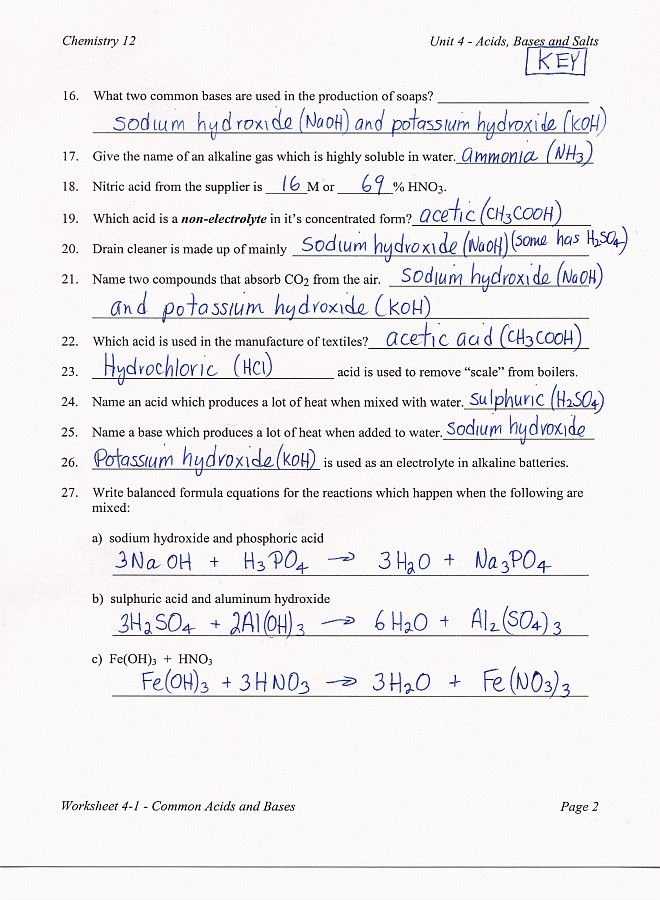 Chemistry 12 Unit 4 - Acids, Bases and Salts
KEY
16. What two common bases are used in the production of soaps?
sodium hydroxide (NaOH) and potassium hydroxide (KOH)
17. Give the name of an alkaline gas which is highly soluble in water. ammonia (NH₃)
18. Nitric acid from the supplier is 16 M or 69 % HNO₃.
19. Which acid is a non-electrolyte in it's concentrated form? acetic (CH₃COOH)
20. Drain cleaner is made up of mainly sodium hydroxide (NaOH) (some has H₂SO₄)
21. Name two compounds that absorb CO₂ from the air. sodium hydroxide (NaOH)
and potassium hydroxide (KOH)
22. Which acid is used in the manufacture of textiles? acetic acid (CH₃COOH)
23. Hydrochloric (HCl) acid is used to remove “scale” from boilers.
24. Name an acid which produces a lot of heat when mixed with water. sulphuric (H₂SO₄)
25. Name a base which produces a lot of heat when added to water. sodium hydroxide
26. Potassium hydroxide (KOH) is used as an electrolyte in alkaline batteries.
27. Write balanced formula equations for the reactions which happen when the following are
mixed:
a) sodium hydroxide and phosphoric acid
3NaOH + H₃PO₄ → 3H₂O + Na₃PO₄
b) sulphuric acid and aluminum hydroxide
3H₂SO₄ + 2Al(OH)₃ → 6H₂O + Al₂(SO₄)₃
c) Fe(OH)₃ + HNO₃
Fe(OH)₃ + 3HNO₃ → 3H₂O + Fe(NO₃)₃
Worksheet 4-1 - Common Acids and Bases Page 2